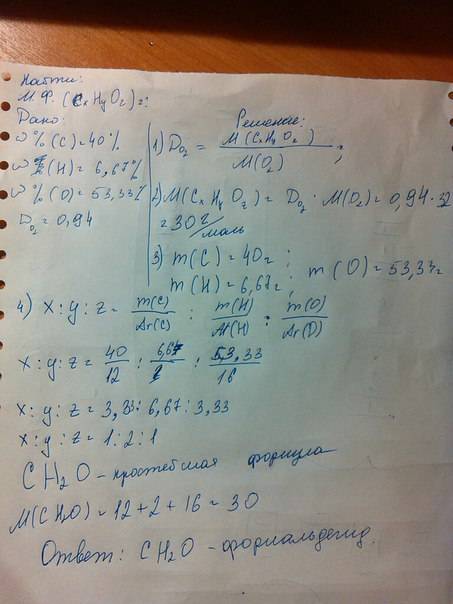 Найти:
М.Ф. (CxHyOz)=:
Дано:
W%(C)=40%
W%(H)=6,67%
W%(O)=53,33%
D O2=0,94
Решение:
1) D O2 = M(CxHyOz) / M(O2) ;
2) M(CxHyOz) = D O2 · M(O2) = 0,94 · 32
= 30 г/моль
3) m(C)=40г ;
m(H)=6,67г ; m(O)=53,33г
4) x:y:z = m(C)/Ar(C) : m(H)/Ar(H) : m(O)/Ar(O)
x:y:z = 40/12 : 6,67/1 : 53,33/16
x:y:z = 3,33:6,67:3,33
x:y:z = 1:2:1
CH2O – простейшая формула
M(CH2O) = 12+2+16 = 30
Ответ: CH2O – формальдегид.